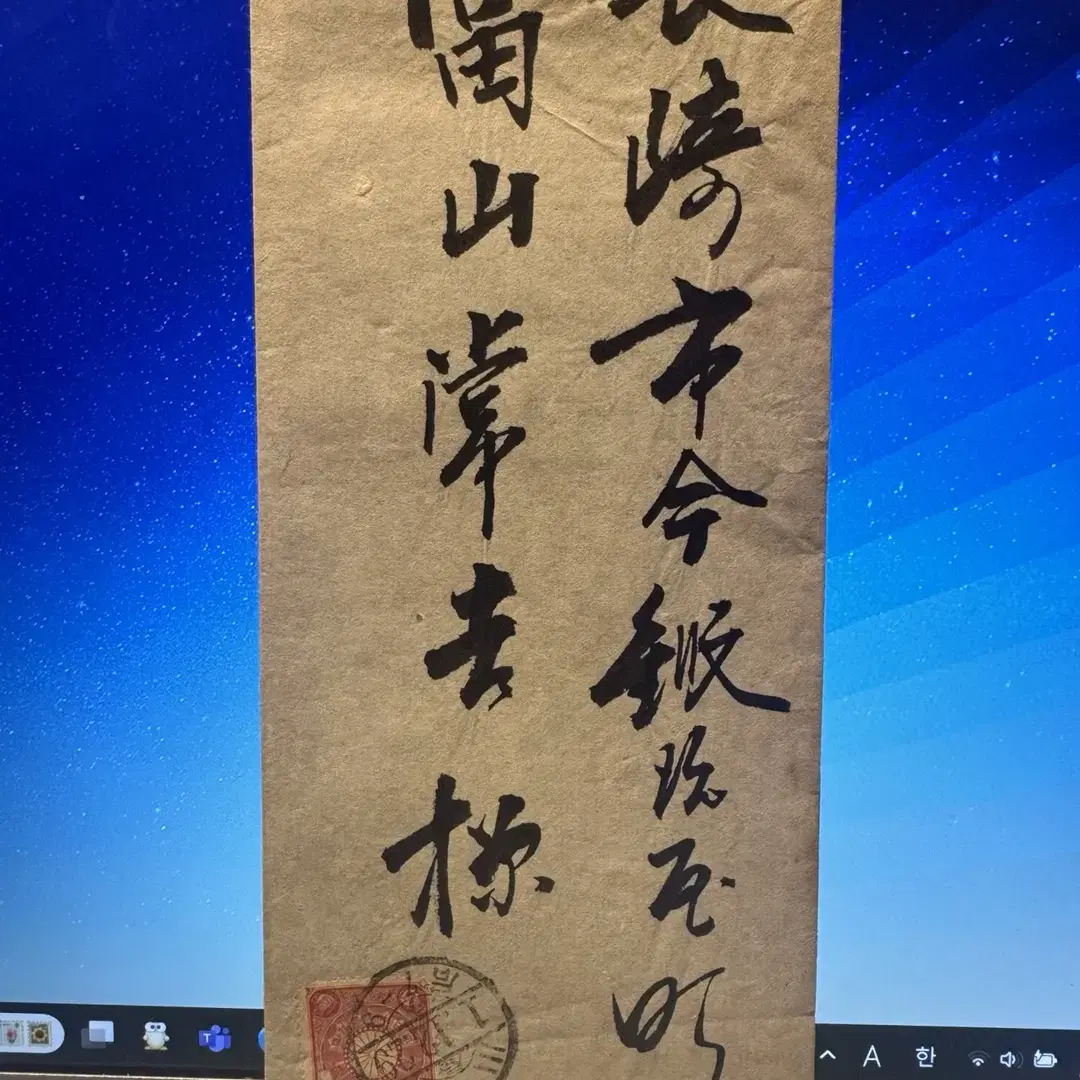 長崎市今鍛冶屋町
富山常吉様
A 한